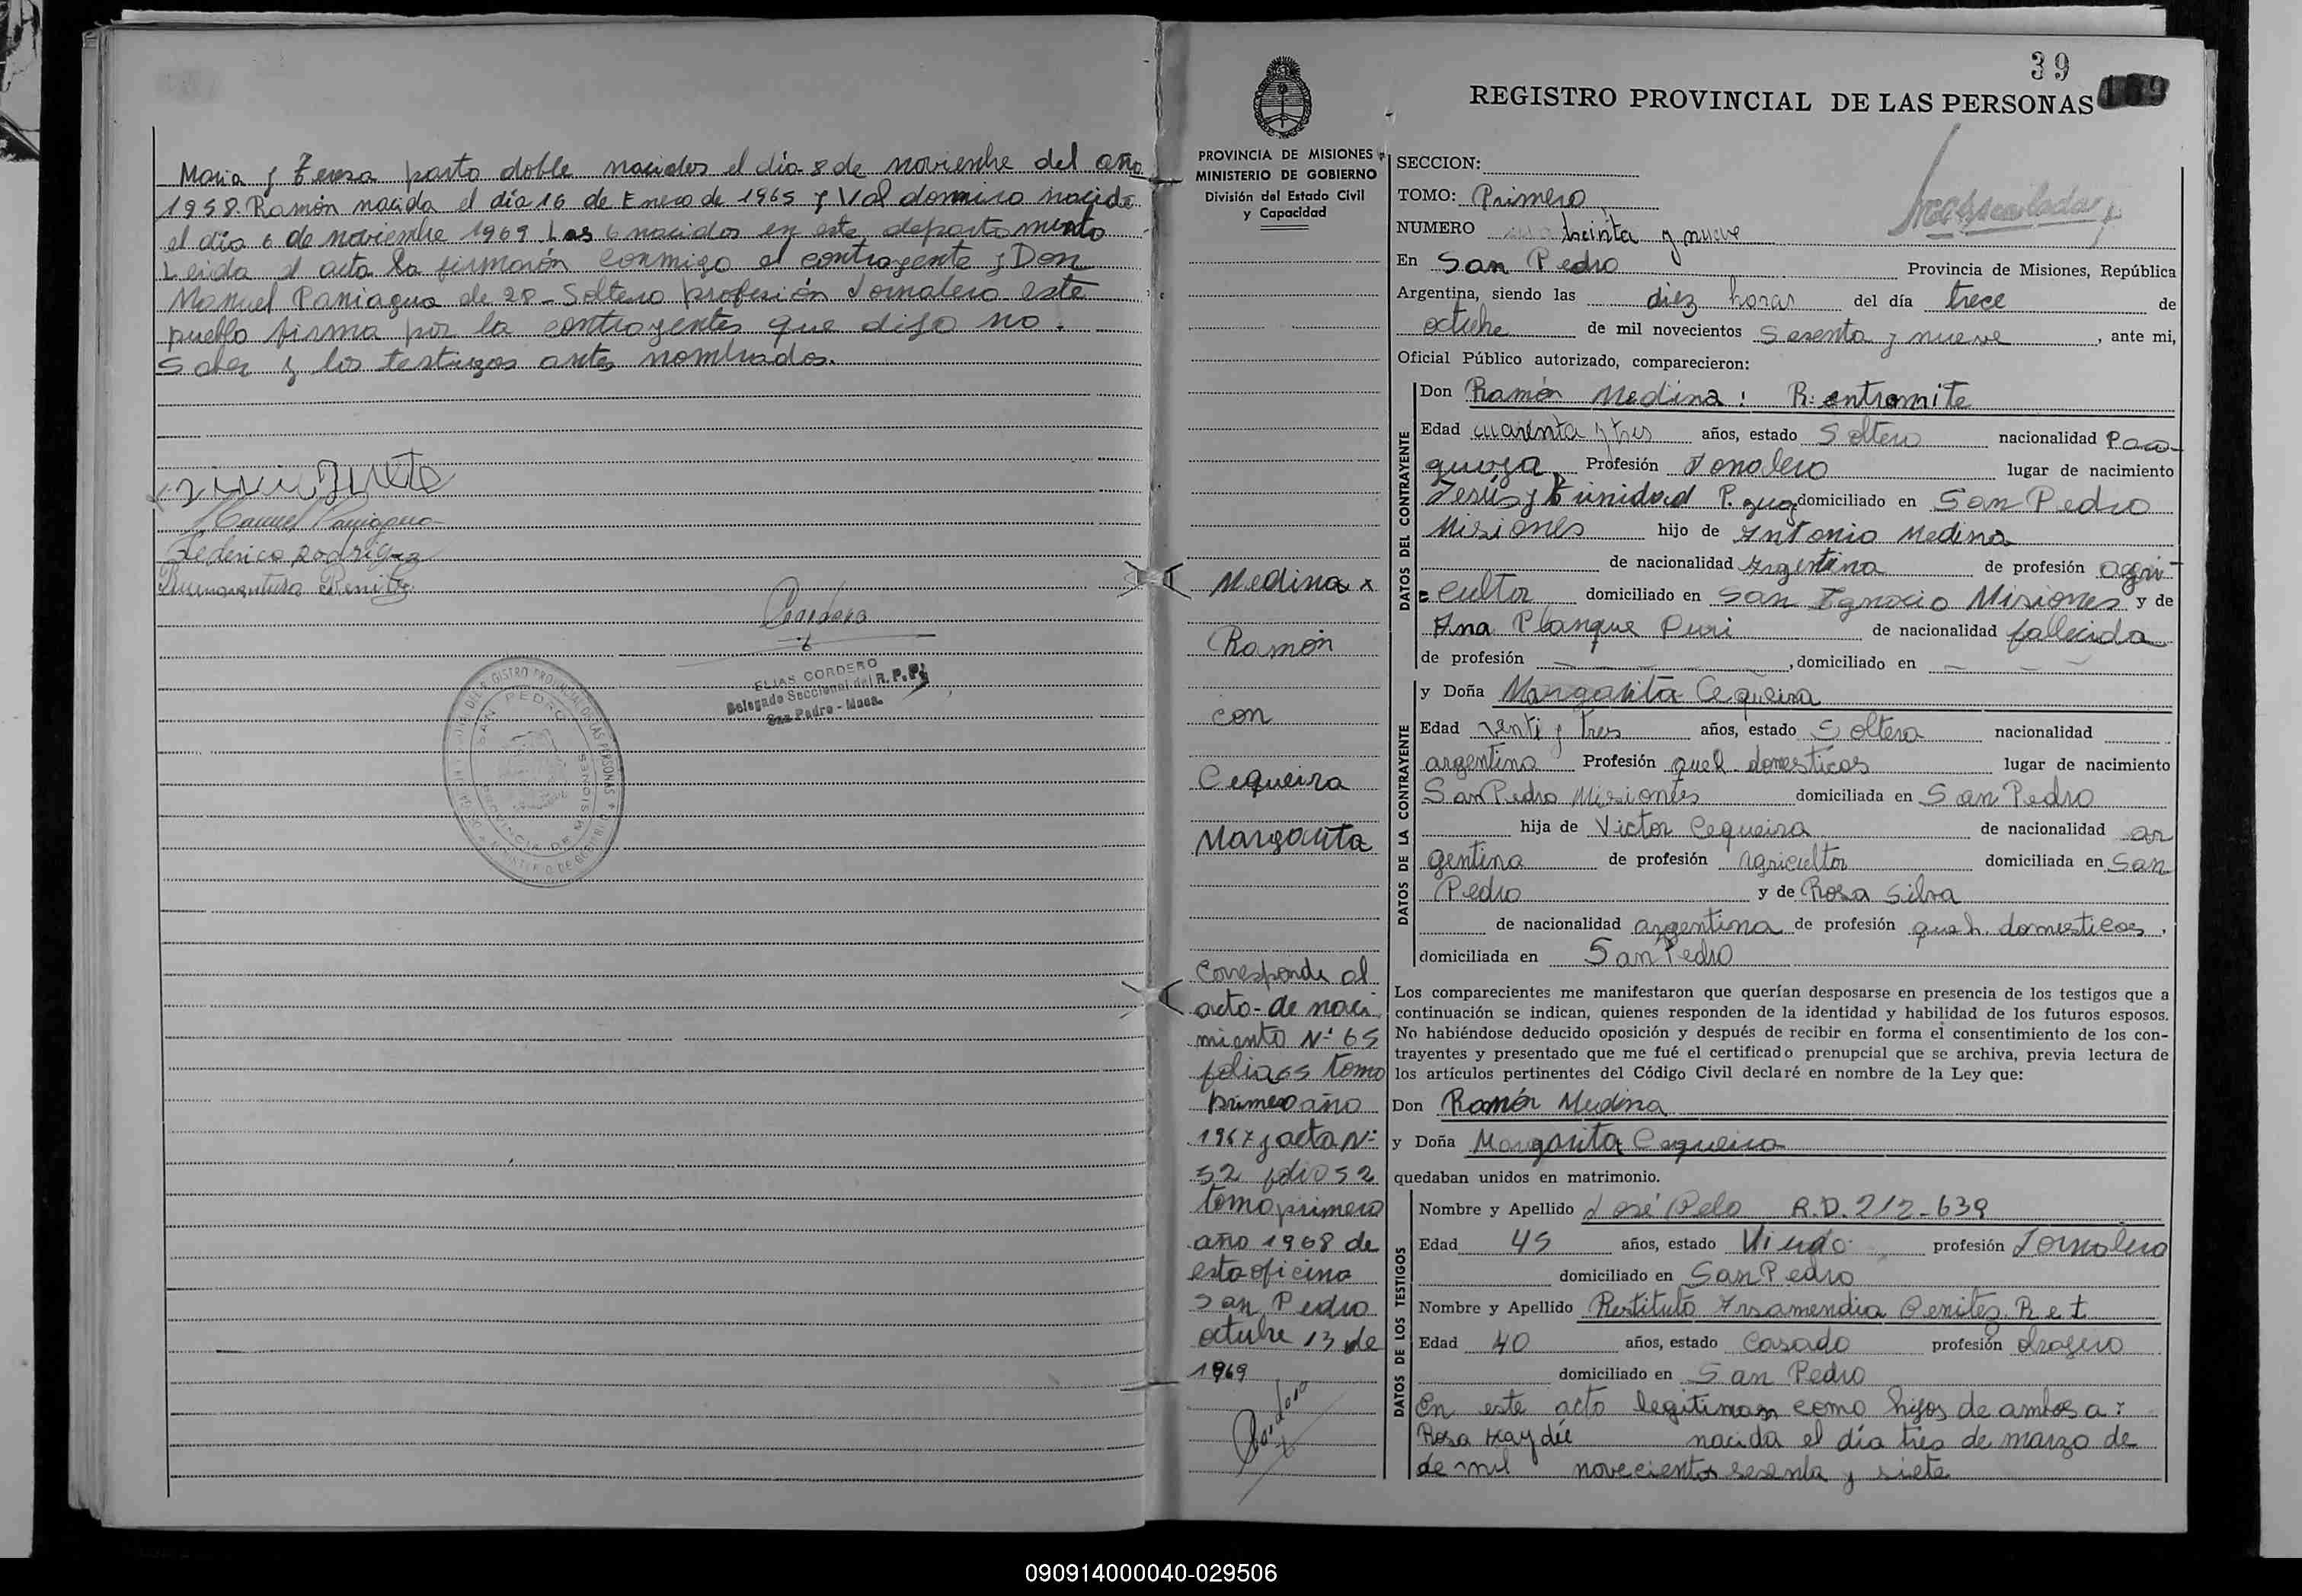 Maria y Teresa parto doble nacidos el día 8 de noviembre del año
1958. Ramón nacida el día 16 de Enero de 1965 y Valdomiro nacido
el día 6 de noviembre 1969. Los 6 nacidos en este departamento
Leida el acta la firmarón conmigo el contrayente y Don
Manuel Paniagua de 28- Soltero profesión Jornalero este
pueblo firma por la contrayentes que dijo no.
Saber y los testigos antes nombrados.
Manuel Paniagua
Federico Rodriguez
Buenaventura Benitez
Cordero
ELIAS CORDERO
Delegado Seccional del R.P.P.
San Pedro - Mnes.
SAN PEDRO
PROVINCIA DE MISIONES
39
REGISTRO PROVINCIAL DE LAS PERSONAS
PROVINCIA DE MISIONES
MINISTERIO DE GOBIERNO
División del Estado Civil
y Capacidad
Medina x
Ramón
con
Cequeira
Margarita
Corresponde al
acto de naci
miento Nº 65
folia 65 tomo
primero año
1967 y acta Nº
52 folio 52
tomo primero
año 1968 de
esta oficina
San Pedro
octubre 13 de
1969
SECCION:
TOMO: Primero
NUMERO treinta y nueve
En San Pedro Provincia de Misiones, República
Argentina, siendo las diez horas del día trece de
octubre de mil novecientos sesenta y nueve, ante mi,
Oficial Público autorizado, comparecieron:
DATOS DEL CONTRAYENTE
Don Ramón Medina: R. entramite
Edad cuarenta y tres años, estado Soltero nacionalidad Para-
guaya Profesión Jonalero lugar de nacimiento
Jesús y Trinidad P. guay domiciliado en San Pedro
Misiones hijo de Antonio Medina
de nacionalidad Argentina de profesión agri-
cultor domiciliado en San Ignacio Misiones y de
Ana Planque Puri de nacionalidad fallecida
de profesión , domiciliado en
DATOS DE LA CONTRAYENTE
y Doña Margarita Cequeira
Edad venti y tres años, estado Soltera nacionalidad
argentina Profesión queh domesticos lugar de nacimiento
San Pedro Misiones domiciliada en San Pedro
hija de Victor Cequeira de nacionalidad ar
gentina de profesión agricultor domiciliada en San
Pedro y de Rosa Silva
de nacionalidad argentina de profesión queh. domesticos.
domiciliada en San Pedro
Los comparecientes me manifestaron que querían desposarse en presencia de los testigos que a
continuación se indican, quienes responden de la identidad y habilidad de los futuros esposos.
No habiéndose deducido oposición y después de recibir en forma el consentimiento de los con-
trayentes y presentado que me fué el certificado prenupcial que se archiva, previa lectura de
los artículos pertinentes del Código Civil declaré en nombre de la Ley que:
Don Ramón Medina
y Doña Margarita Cequeira
quedaban unidos en matrimonio.
DATOS DE LOS TESTIGOS
Nombre y Apellido José Pelo R.D. 212-639
Edad 45 años, estado Viudo profesión Jornalero
domiciliado en San Pedro
Nombre y Apellido Restituto Irsamendia Benitez R e t
Edad 40 años, estado Casado profesión
domiciliado en San Pedro
En este acto legitiman como hijos de ambos a:
Rosa Haydée nacida el día tres de marzo de
de mil novecientos sesenta y siete
090914000040-029506